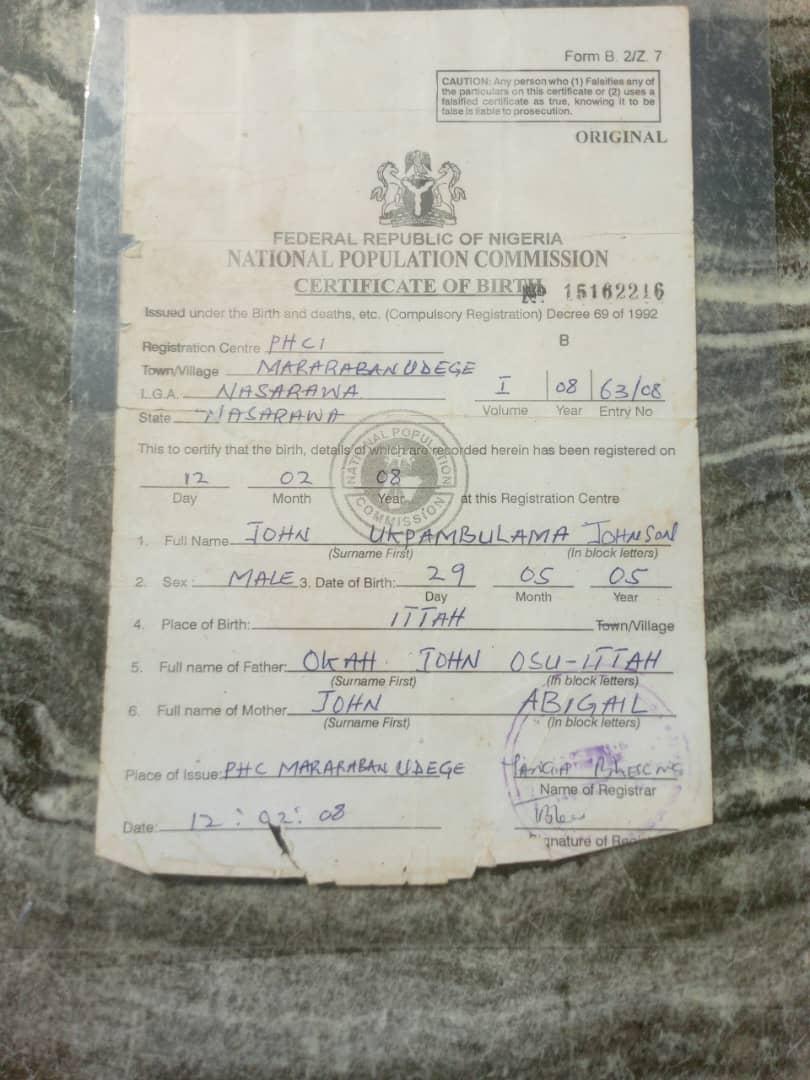 Form B. 2/Z. 7
CAUTION: Any person who (1) Falsifies any of
the particulars on this certificate or (2) uses a
falsified certificate as true, knowing it to be
false is liable to prosecution.
ORIGINAL
FEDERAL REPUBLIC OF NIGERIA
NATIONAL POPULATION COMMISSION
CERTIFICATE OF BIRTH No 15162216
Issued under the Birth and deaths, etc. (Compulsory Registration) Decree 69 of 1992
Registration Centre PHC1 B
Town/Village MARARABAN UDEGE
L.G.A. NASARAWA I 08 63/08
State NASARAWA Volume Year Entry No
NATIONAL POPULATION COMMISSION
This to certify that the birth, details of which are recorded herein has been registered on
12 02 08
Day Month Year at this Registration Centre
1. Full Name JOHN UKPAMBULAMA JOHNSON
(Surname First) (In block letters)
2. Sex: MALE 3. Date of Birth: 29 05 05
Day Month Year
4. Place of Birth: ITTAH Town/Village
5. Full name of Father: OKAH JOHN OSU-ITTAH
(Surname First) (In block letters)
6. Full name of Mother JOHN ABIGAIL
(Surname First) (In block letters)
Place of Issue: PHC MARARABAN UDEGE
Name of Registrar
Date: 12:02:08